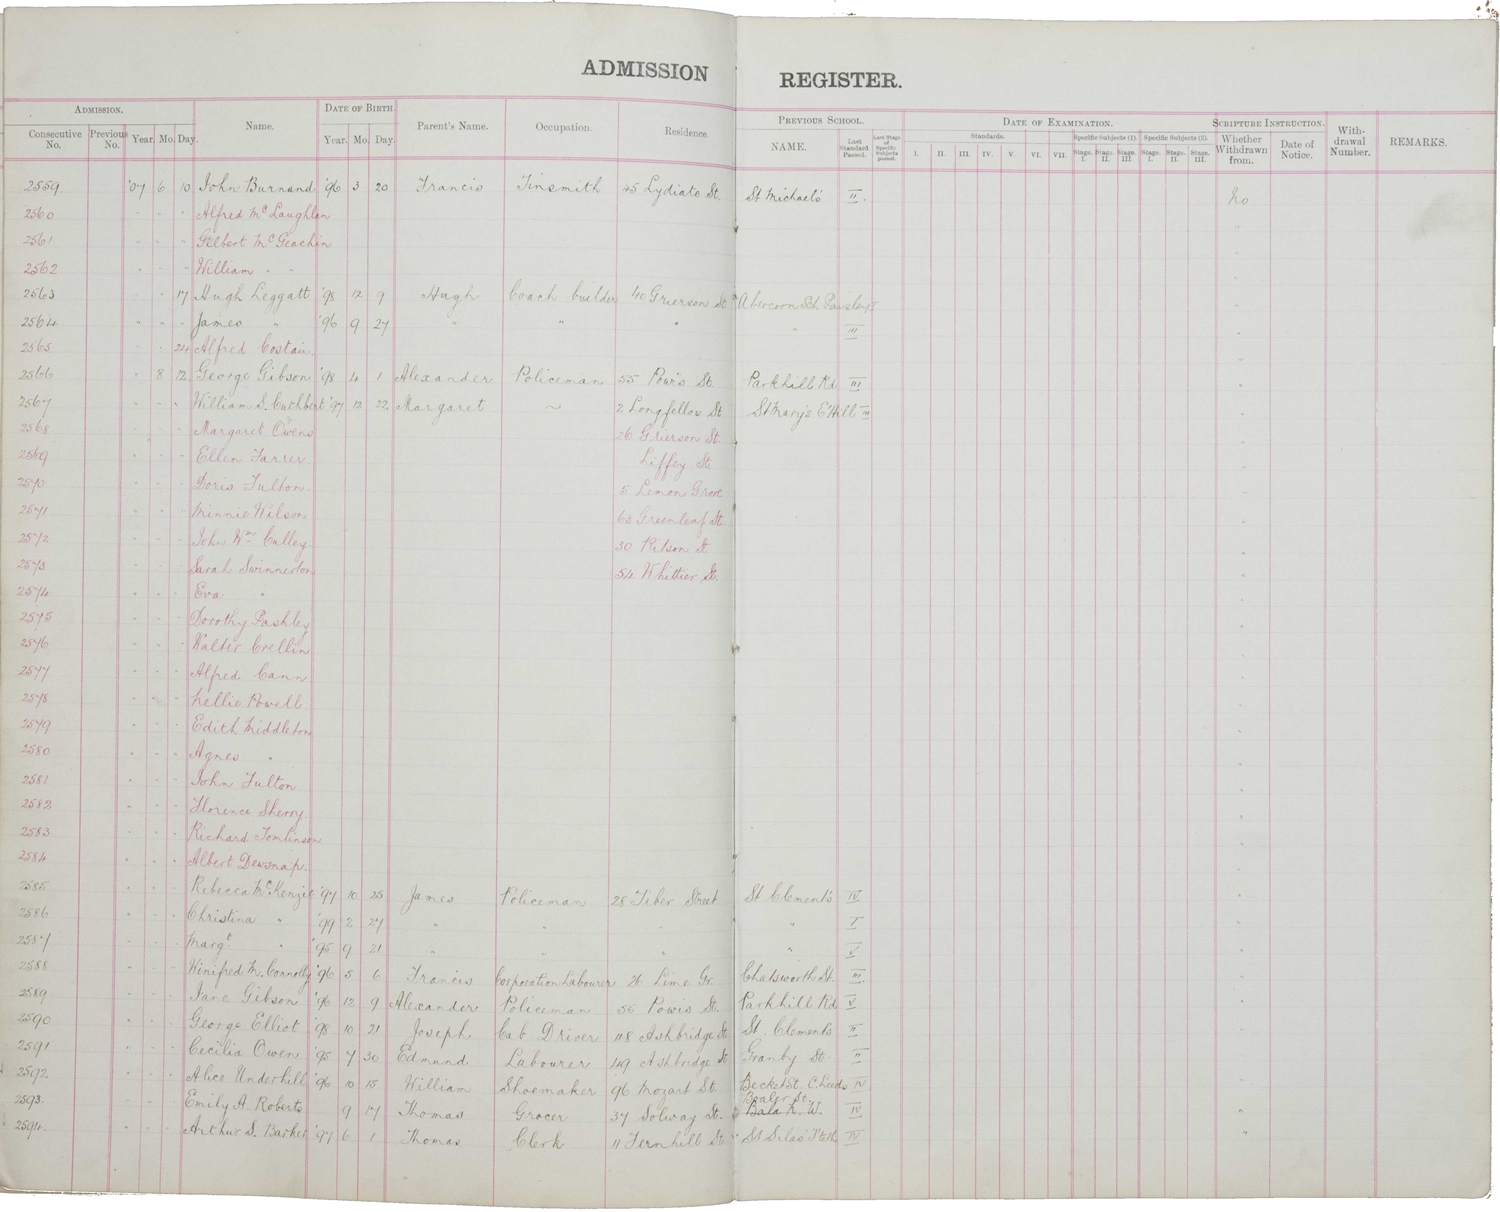 ADMISSION REGISTER.
ADMISSION. Name. DATE OF BIRTH. Parent's Name. Occupation. Residence. PREVIOUS SCHOOL. DATE OF EXAMINATION. SCRIPTURE INSTRUCTION. With-drawal Number. REMARKS.
Consecutive No. Previous No. Year. Mo. Day. Year. Mo. Day. NAME. Last Standard Passed. Last Stage of Specific Subjects passed. Standards. Specific Subjects (1). Specific Subjects (2). Whether Withdrawn from. Date of Notice.
I. II. III. IV. V. VI. VII. Stage. I. Stage. II. Stage. III Stage. I. Stage. II. Stage. III.
2559 '07 6 10 John Burnand '96 3 20 Francis Tinsmith 45 Lydiate St. St Michael's II. No
2560 " " " Alfred McLaughlan "
2561 " " " Gilbert McGeachin "
2562 " " " William " " "
2563 " 17 Hugh Leggatt '98 12 9 Hugh Coach builder 40 Grierson St Abercorn Sch. Paisley II "
2564 " " " James " '96 9 27 " " " " III "
2565 " " 24 Alfred Costain "
2566 " 8 12 George Gibson '98 4 1 Alexander Policeman 55 Powis St. Parkhill Rd III "
2567 " " " William S. Cuthbert '97 12 22 Margaret ~ 2 Longfellow St St Mary's E'Hill III "
2568 " " " Margaret Owens 26 Grierson St. "
2569 " " " Ellen Farrer Liffey St. "
2570 " " " Doris Fulton 5 Lemon Grove "
2571 " " " Minnie Wilson 63 Greenleaf St. "
2572 " " " John Wm Culley 30 Ritson St "
2573 " " " Sarah Swinnerton 54 Whittier St. "
2574 " " " Eva " "
2575 " " " Dorothy Pashley "
2576 " " " Walter Crellin "
2577 " " " Alfred Cann "
2578 " " " Nellie Powell "
2579 " " " Edith Middleton "
2580 " " " Agnes " "
2581 " " " John Fulton "
2582 " " " Florence Sherry "
2583 " " " Richard Tomlinson "
2584 " " " Albert Dewsnap "
2585 " " " Rebecca McKenzie '97 10 25 James Policeman 28 Tiber Street St Clement's IV "
2586 " " " Christina " '99 2 27 " " " " I "
2587 " " " Margt " '95 9 21 " " " " V "
2588 " " " Winifred M. Connolly '96 5 6 Francis Corporation Labourer 26 Lime Gr. Chatsworth St. III "
2589 " " " Jane Gibson '96 12 9 Alexander Policeman 55 Powis St. Parkhill Rd V "
2590 " " " George Elliot '98 10 21 Joseph Cab Driver 118 Ashbridge St St. Clements II "
2591 " " " Cecilia Owen '95 7 30 Edmund Labourer 49 Ashbridge St Granby St. II "
2592 " " " Alice Underhill '96 10 15 William Shoemaker 96 Mozart St. Becket St. C. Leeds IV
2593 " " " Emily A. Roberts 9 17 Thomas Grocer 37 Solway St. Bala N. W. IV "
2594 " " " Arthur S. Barker '97 6 1 Thomas Clerk 11 Fernhill St. St Silas' IV "